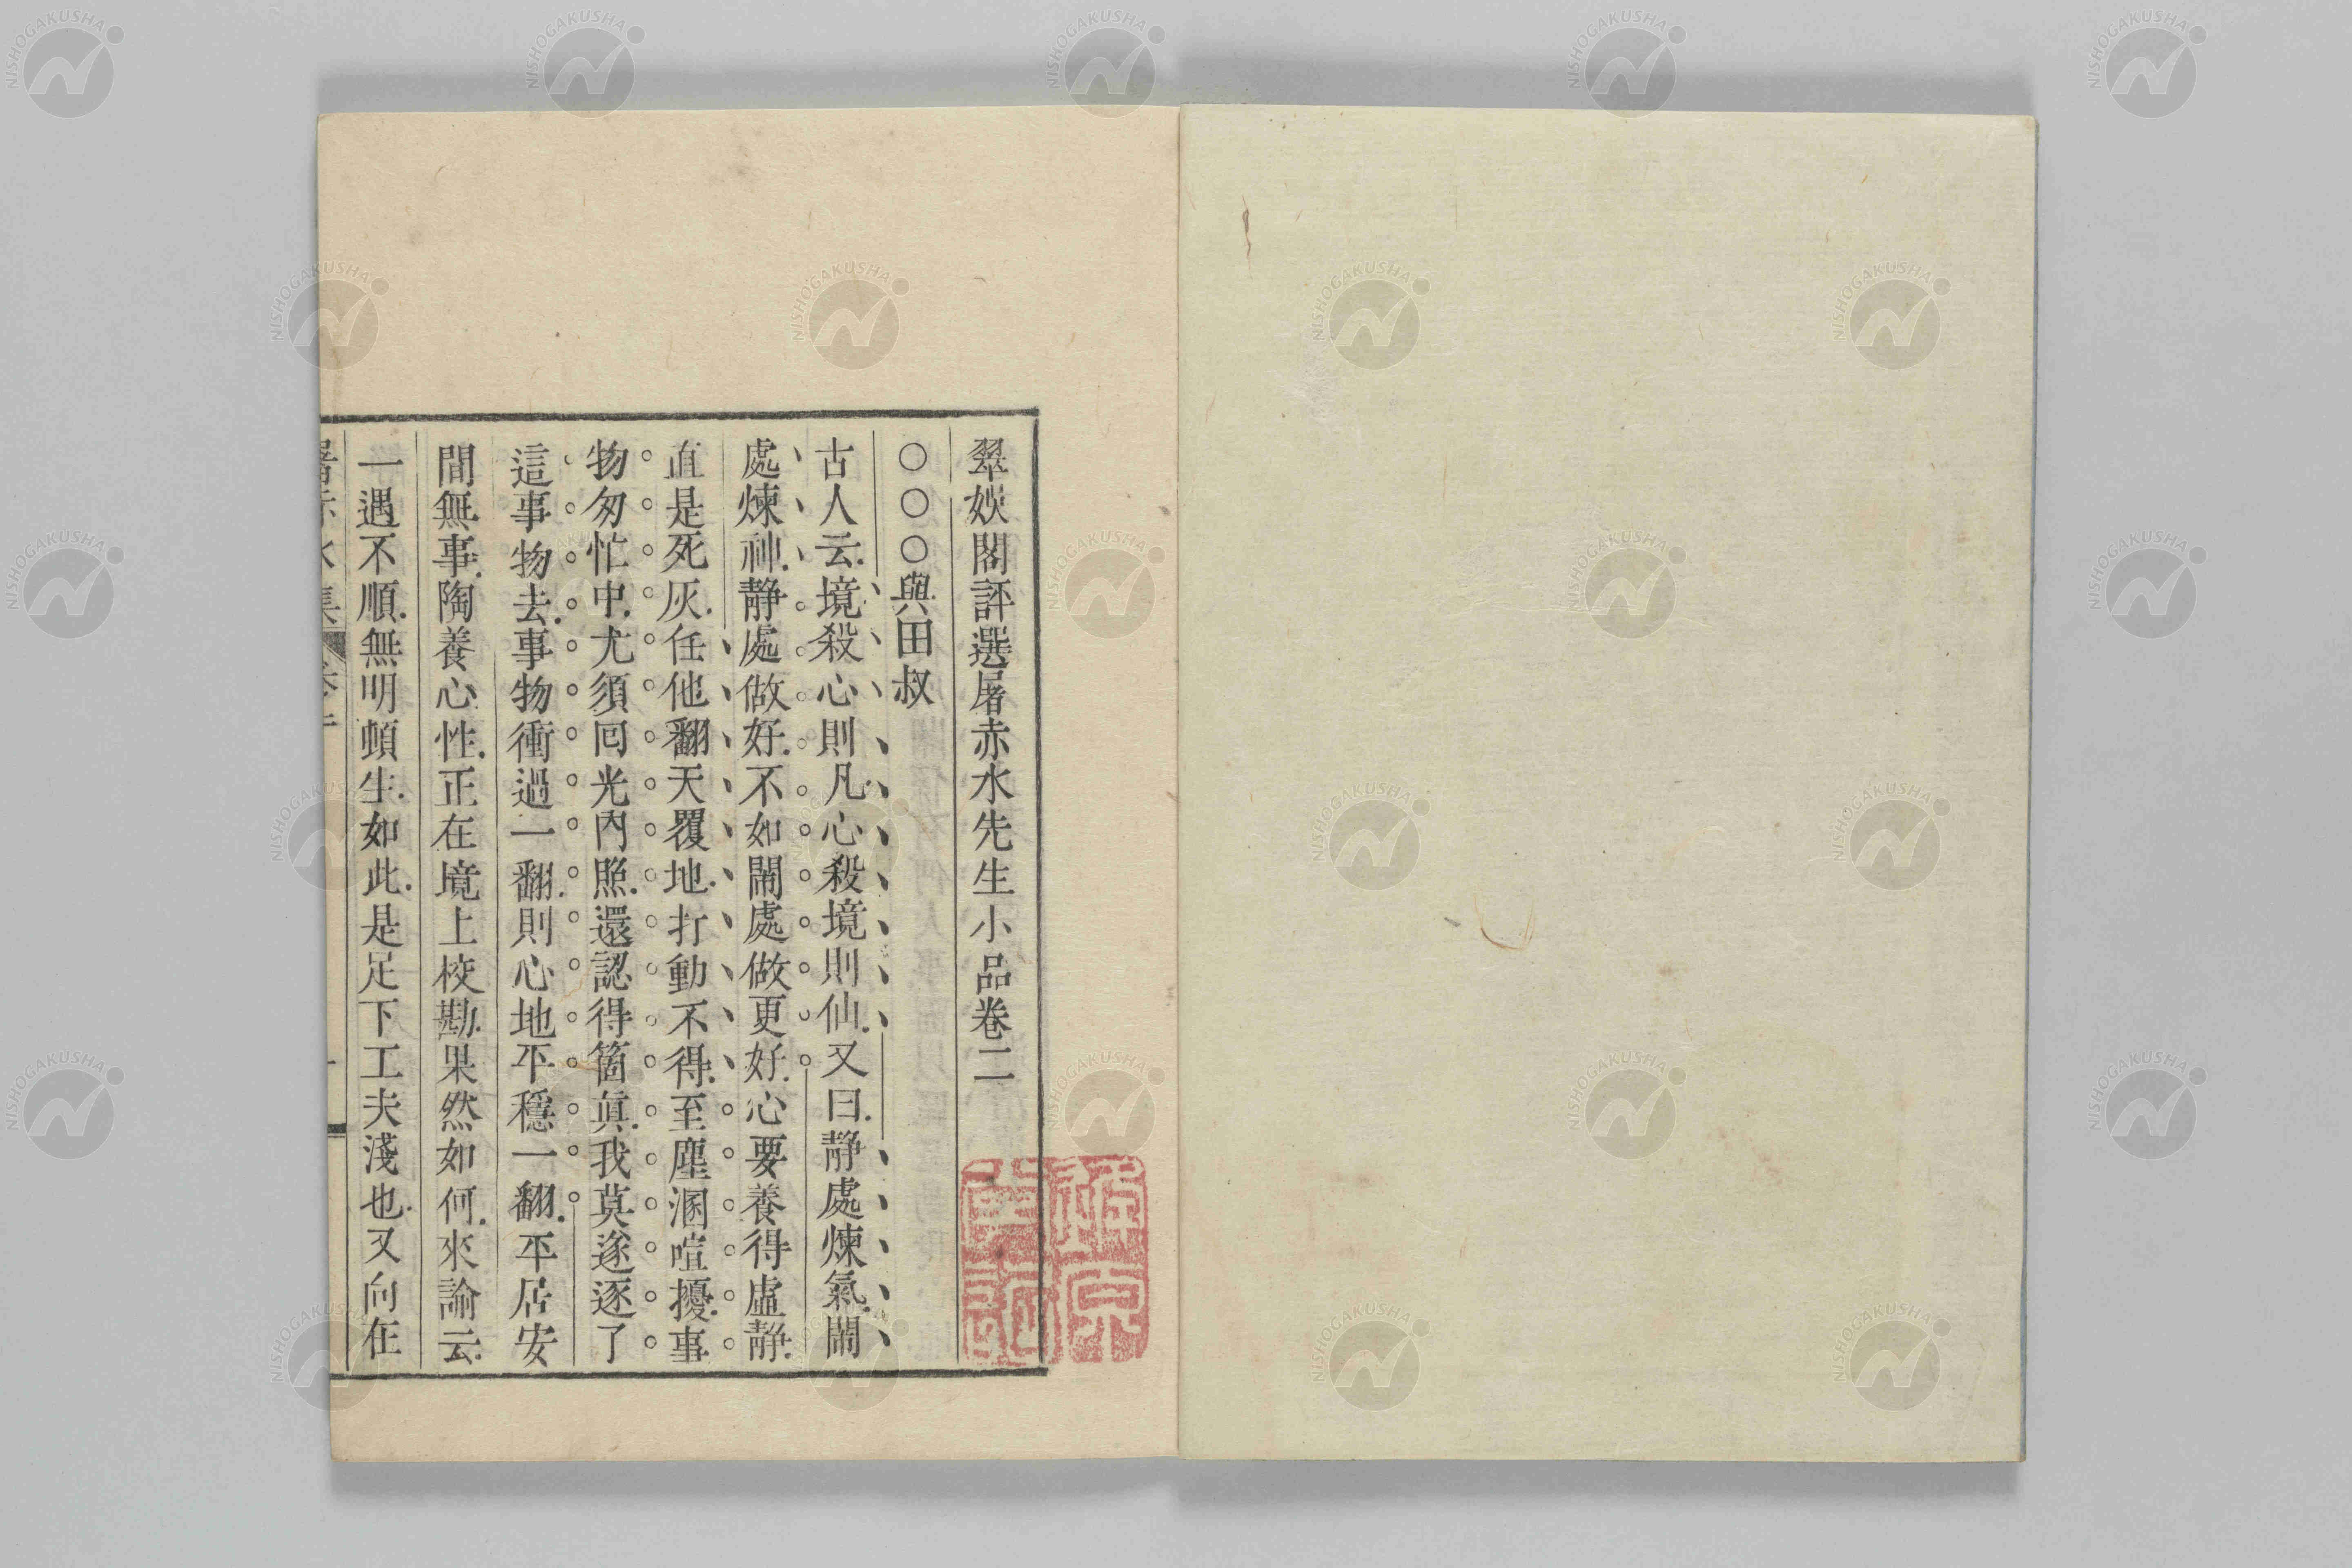 翠娛閣評選屠赤水先生小品卷二
○○○與田叔
古人云境殺心則凡心殺境則仙又曰靜處煉氣鬧
處煉神靜處做好不如鬧處做更好心要養得虛靜
直是死灰任他翻天覆地打動不得至塵溷喧擾事
物匆忙中尤須回光內照還認得箇眞我莫遂逐了
這事物去事物衝過一翻則心地平穩一翻平居安
間無事陶養心性正在境上校勘果然如何來諭云
一遇不順無明頓生如此是足下工夫淺也又向在
NISHOGAKUSHA